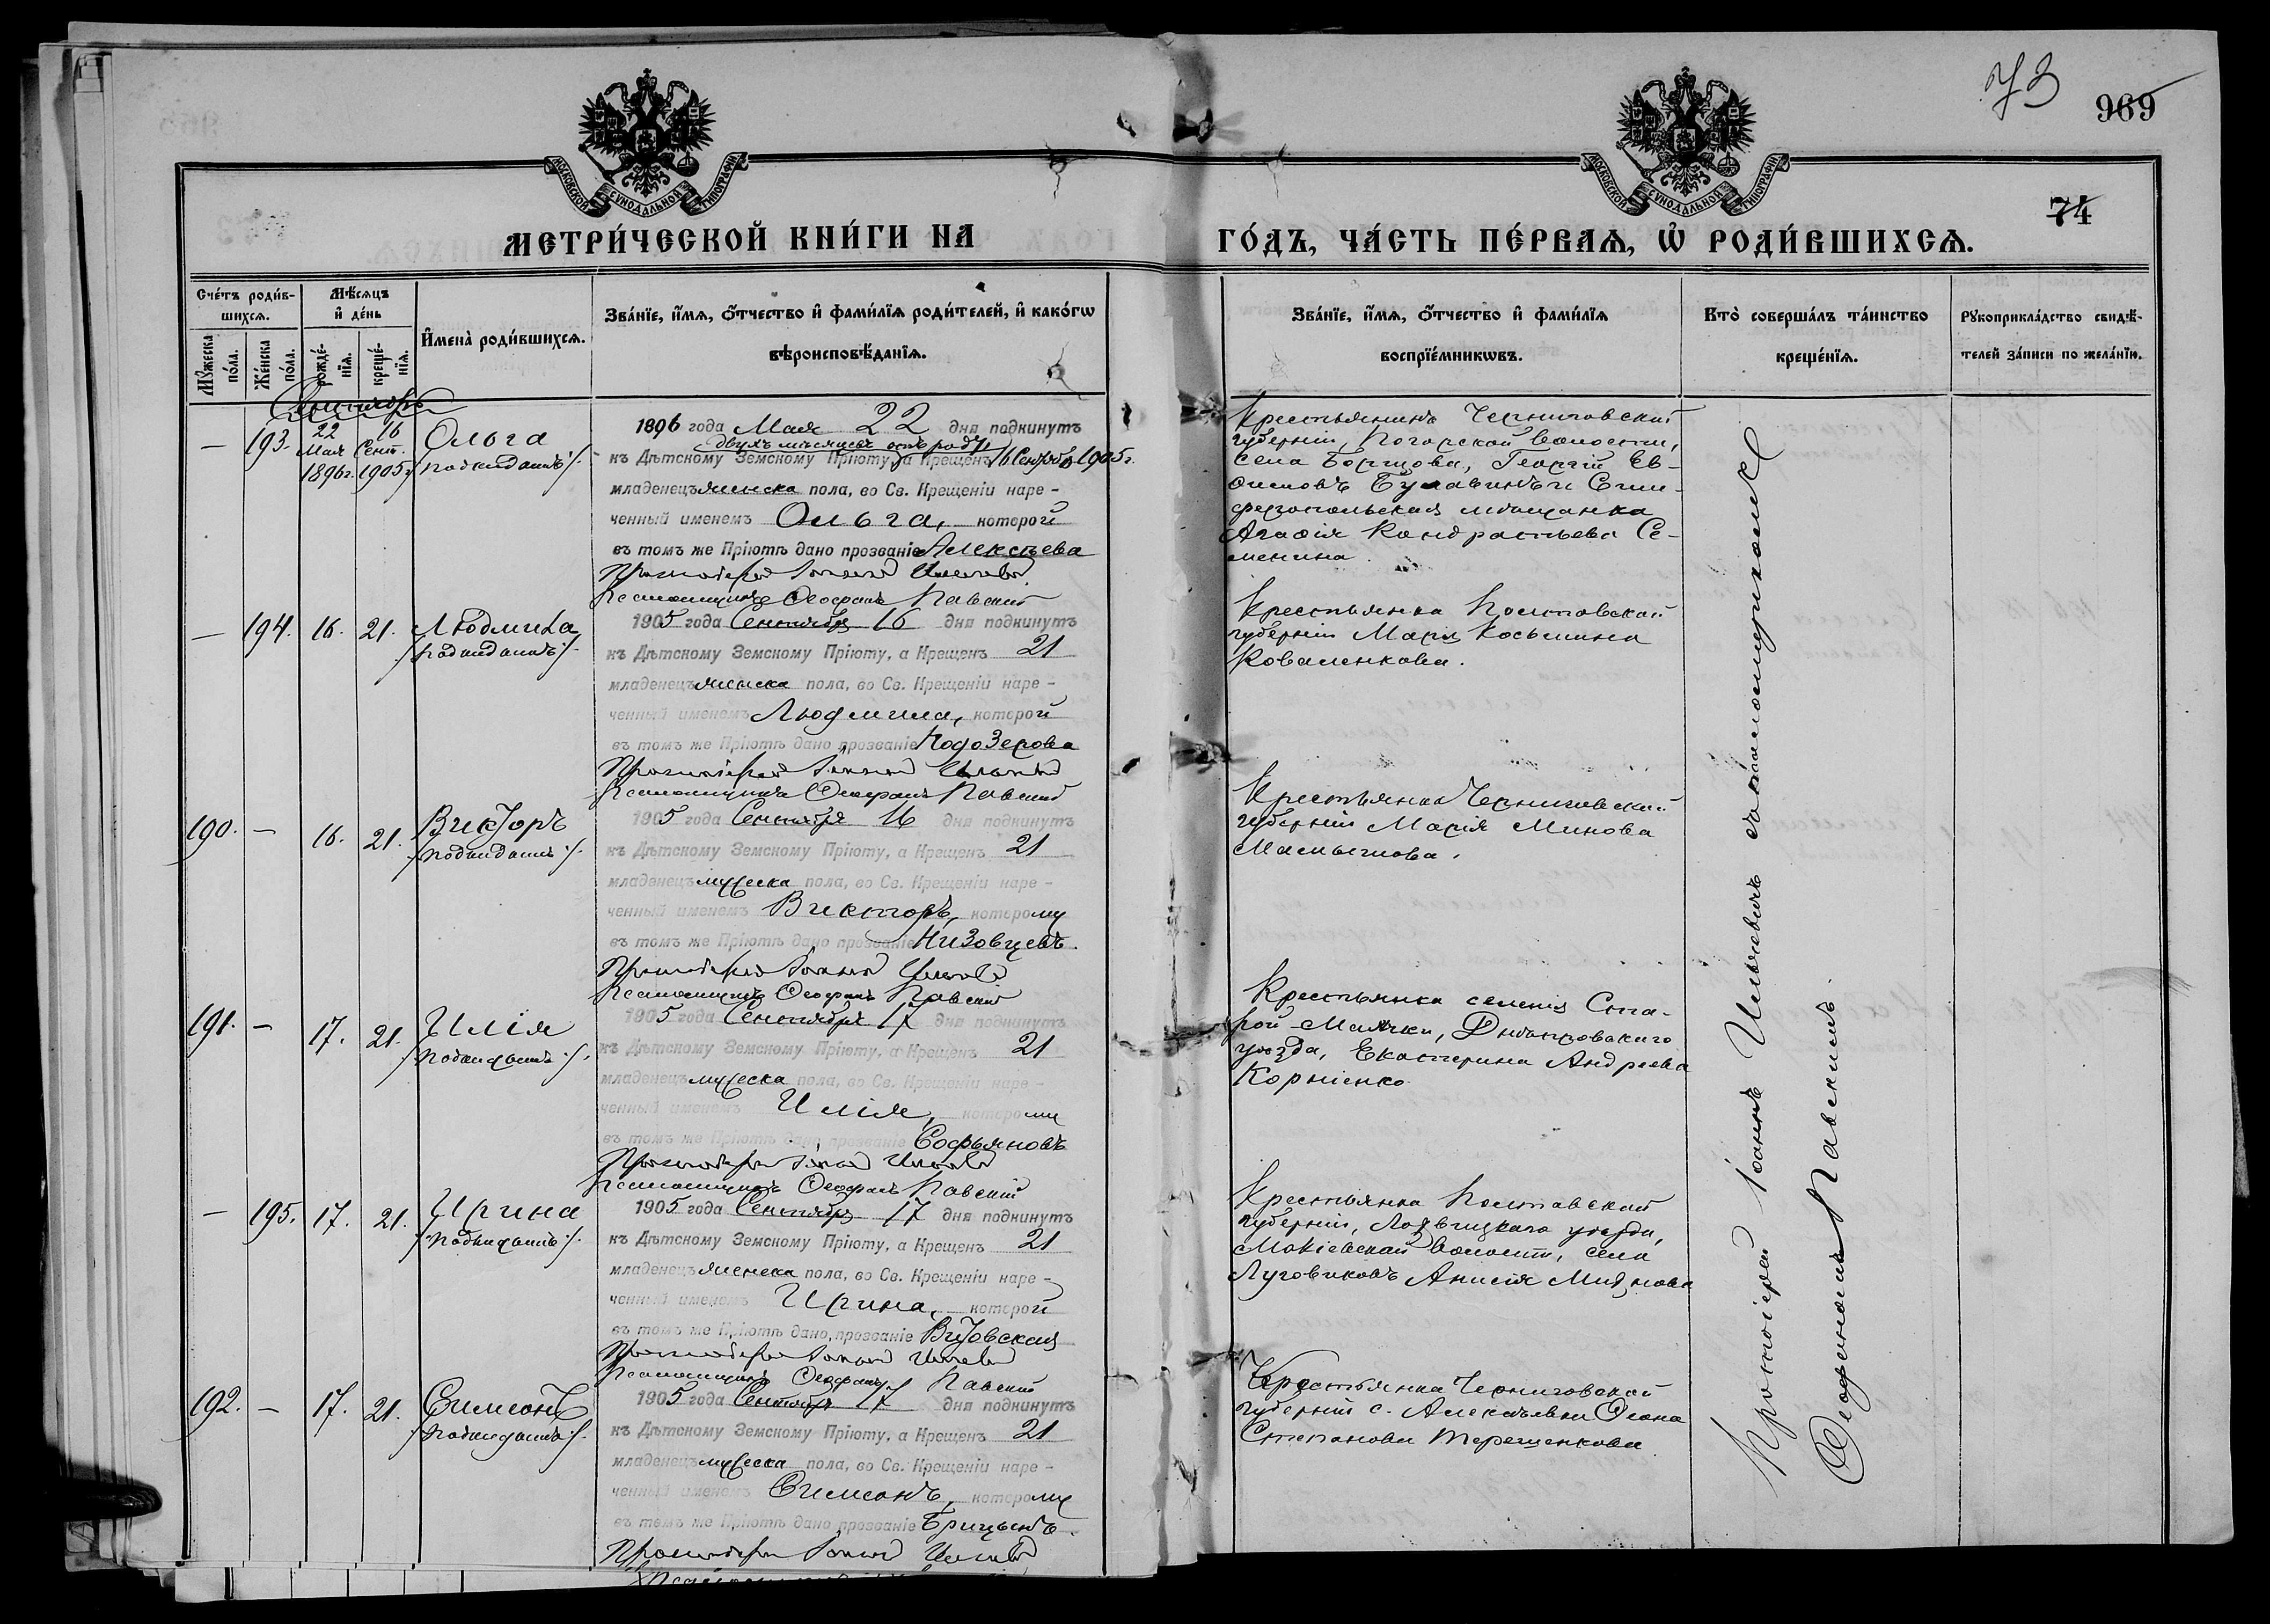 73
969
74
МОСКОВСКОЙ СѴНОДАЛЬНОЙ ТИПОГРАФІИ
МОСКОВСКОЙ СѴНОДАЛЬНОЙ ТИПОГРАФІИ
МЕТРИ́ЧЕСКОЙ КНИ́ГИ НА
ГО́ДЪ, ЧА́СТЬ ПЕ́РВАѦ, Ѡ҆ РОДИ́ВШИХСѦ.
Сче́тъ роди́в-
шихсѧ.
Мꙋ́жеска по́ла.
Же́нска по́ла.
Мѣ́сѧцъ
и҆ де́нь
рожде́-
нїѧ.
креще́-
нїѧ.
И҆мена̀ роди́вшихсѧ.
Зва́нїе, и҆́мѧ, ѻ҆́тчество и҆ фами́лїѧ роди́телей, и҆ како́гѡ
вѣроисповѣ́данїѧ.
Зва́нїе, и҆́мѧ, ѻ҆́тчество и҆ фами́лїѧ
воспрїе́мникѡвъ.
Кто̀ соверша́лъ та́инство
креще́нїѧ.
Рꙋкоприкла́дство свидѣ́-
телей за́писи по жела́нїю.
Сентябрь
— 193. 22 Мая 1896г. 16 Сент. 1905г.
Ольга
/подкидышъ/.
1896 года Мая 22 дня подкинутъ
двухъ мѣсяцевъ отъ роду
къ Дѣтскому Земскому Пріюту, а Крещенъ 16 Сентября 1905г.
младенецъ женска пола, во Св. Крещеніи наре-
ченный именемъ Ольга, которой
въ томъ же Пріютѣ дано прозваніе Алексѣева
Протоіерей Іоаннъ
Псаломщикъ Ѳеофанъ Павскій
Крестьянинъ Черниговской
губерніи, Погарской волости,
села Борщова, Георгій Ев-
и Сим-
феропольская мѣщанка
Агафія Кондратьева Се-
менина.
— 194. 16. 21. Людмила
/подкидышъ/.
1905 года Сентября 16 дня подкинутъ
къ Дѣтскому Земскому Пріюту, а Крещенъ 21
младенецъ женска пола, во Св. Крещеніи наре-
ченный именемъ Людмила, которой
въ томъ же Пріютѣ дано прозваніе
Протоіерей Іоаннъ
Псаломщикъ Ѳеофанъ Павскій
Крестьянка Полтавской
губерніи Марія Косьмина
Коваленкова.
190. — 16. 21. Викторъ
/подкидышъ/.
1905 года Сентября 16 дня подкинутъ
къ Дѣтскому Земскому Пріюту, а Крещенъ 21
младенецъ мужеска пола, во Св. Крещеніи наре-
ченный именемъ Викторъ, которому
въ томъ же Пріютѣ дано прозваніе Низовцевъ.
Протоіерей Іоаннъ
Псаломщикъ Ѳеофанъ Павскій
Крестьянка Черниговской
губерніи Марія Минова
191. — 17. 21. Илія
/подкидышъ/.
1905 года Сентября 17 дня подкинутъ
къ Дѣтскому Земскому Пріюту, а Крещенъ 21
младенецъ мужеска пола, во Св. Крещеніи наре-
ченный именемъ Илія, которому
въ томъ же Пріютѣ дано прозваніе Софьяновъ
Протоіерей Іоаннъ
Псаломщикъ Ѳеофанъ Павскій
Крестьянка селенія Ста-
рой-Маячки, Днѣпровскаго
уѣзда, Екатерина Андреева
Корніенко
— 195. 17. 21. Ирина
/подкидышъ/.
1905 года Сентября 17 дня подкинутъ
къ Дѣтскому Земскому Пріюту, а Крещенъ 21
младенецъ женска пола, во Св. Крещеніи наре-
ченный именемъ Ирина, которой
въ томъ же Пріютѣ дано прозваніе
Протоіерей Іоаннъ
Псаломщикъ Ѳеофанъ Павскій
Крестьянка Полтавской
губерніи, уѣзда,
волости, села
Анисія
192. — 17. 21. Симеонъ
/подкидышъ/.
1905 года Сентября 17 дня подкинутъ
къ Дѣтскому Земскому Пріюту, а Крещенъ 21
младенецъ мужеска пола, во Св. Крещеніи наре-
ченный именемъ Симеонъ, которому
въ томъ же Пріютѣ дано прозваніе Брицынъ.
Протоіерей Іоаннъ
Крестьянка Черниговской
губерніи с. Алексѣевки
Степанова Терещенкова
Протоіерей Іоаннъ съ псаломщикомъ
Ѳеофаномъ Павскимъ.